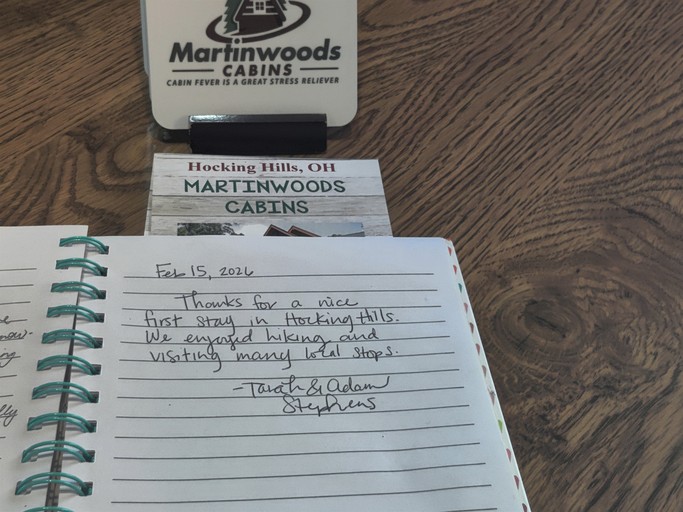 Martinwoods
CABINS
CABIN FEVER IS A GREAT STRESS RELIEVER
Hocking Hills, OH
MARTINWOODS
CABINS
Feb 15, 2026
Thanks for a nice
first stay in Hocking Hills.
We enjoyed hiking and
visiting many local stops.
-Tarah & Adam
Stephens